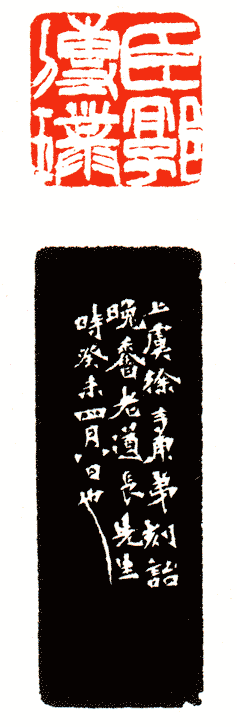 臣郭
傳璞
上虞徐三庚弟刻詒
晚香老道長先生
時癸未四月八日也